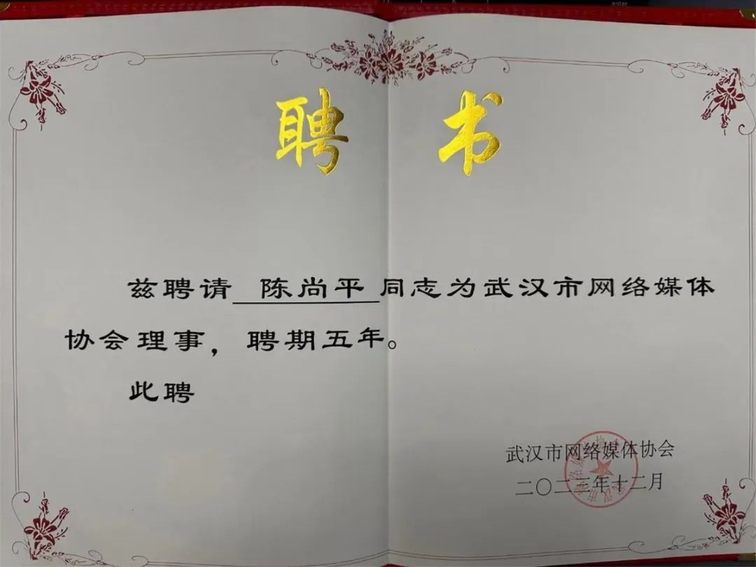 聘书
兹聘请 陈尚平 同志为武汉市网络媒体
协会理事，聘期五年。
此聘
武汉市网络媒体协会
二〇二三年十二月